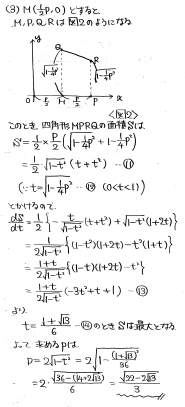 (3) M(½p, 0) とすると
M, P, Q, R は図2のようになる
y
Q
R
√(1-¼p²)
√(1-¼p²)
O
M
P
x
<図2>
このとき, 四角形 MPRQ の面積 S は
S = 1/2 × p/2 (√(1-¼p²) + 1-¼p²)
= 1/2 √(1-t²) (t+t²) …⑪
(∵ t = √(1-¼p²) …⑫ (0<t<1))
とかけるので、
dS/dt = 1/2 { - t/√(1-t²) (t+t²) + √(1-t²) (1+2t) }
= 1/(2√(1-t²)) {(1-t²)(1+2t) - t²(1+t)}
= (1+t)/(2√(1-t²)) {(1-t)(1+2t) - t²}
= (1+t)/(2√(1-t²)) (-3t²+t+1) …⑬
より
t = (1+√13)/6 …⑭ のとき S は最大となる
よって 求める p は
p = 2√(1-t²) = 2√(1 - (1+√13)²/36)
= 2・√(36-(14+2√13))/6 = √(22-2√13)/3